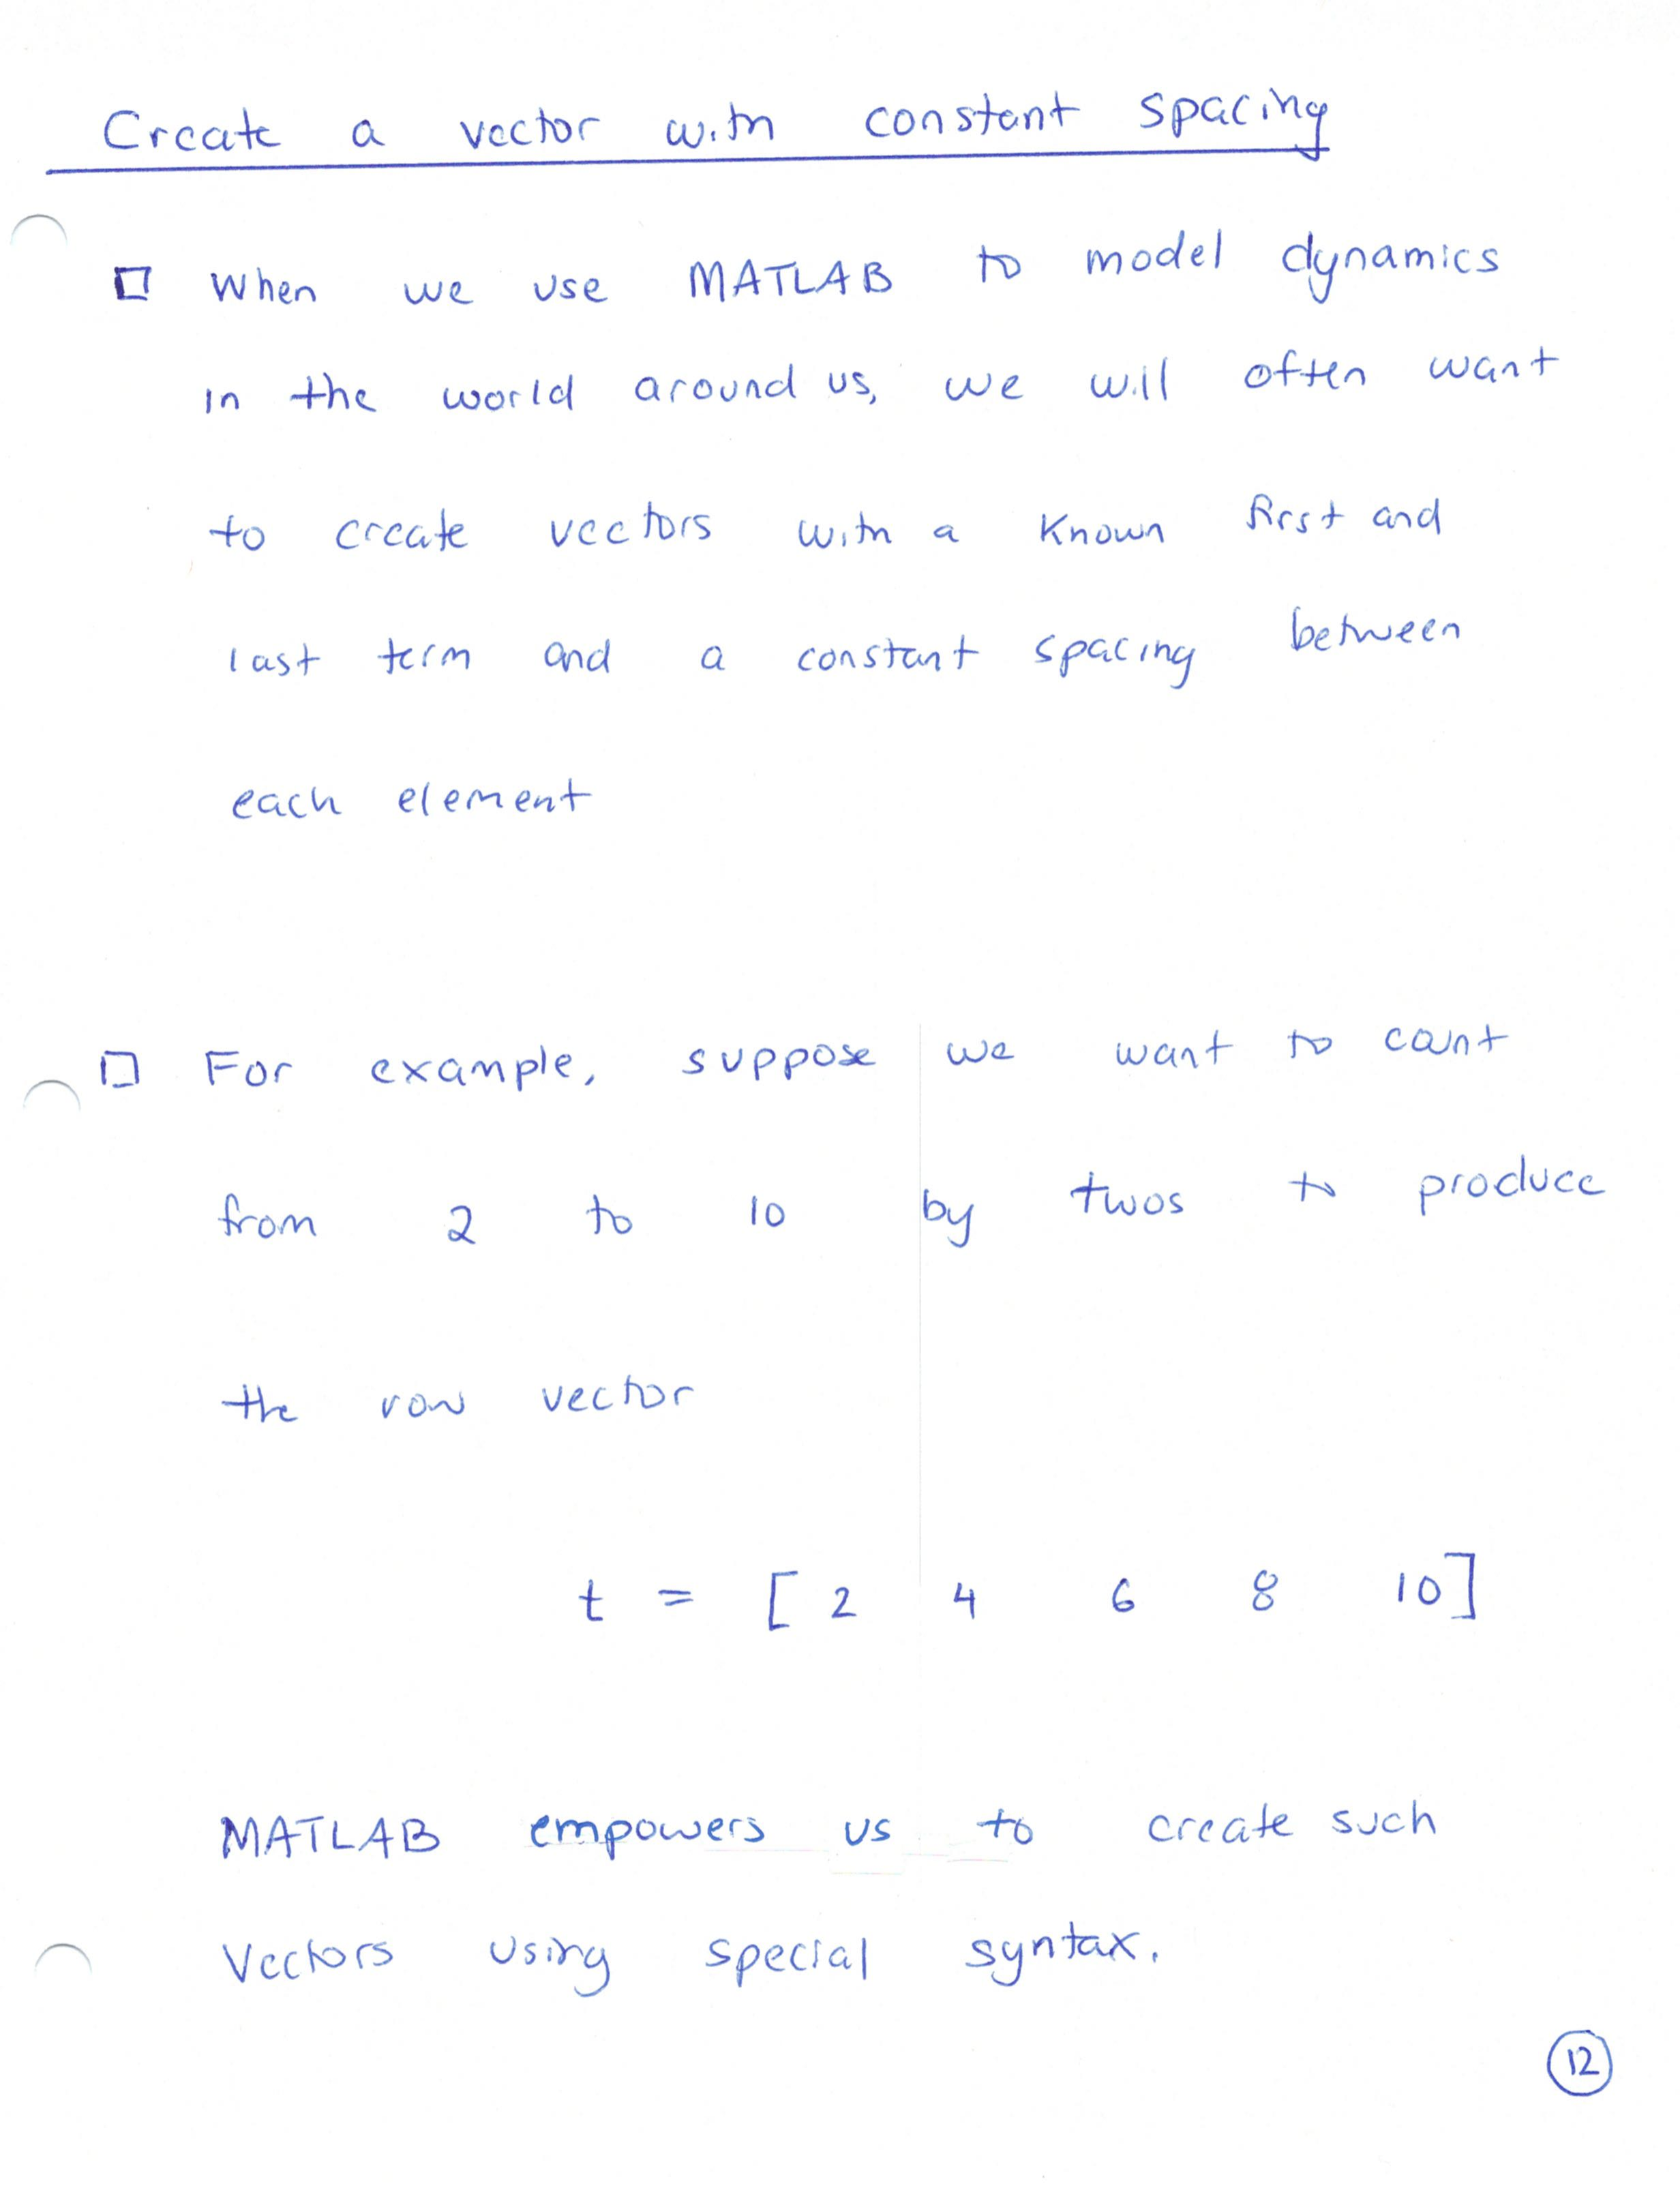 Create a vector with constant spacing
When we use MATLAB to model dynamics
in the world around us, we will often want
to create vectors with a known first and
last term and a constant spacing between
each element
For example, suppose we want to count
from 2 to 10 by twos to produce
the row vector
t = [ 2 4 6 8 10 ]
MATLAB empowers us to create such
vectors using special syntax.
12